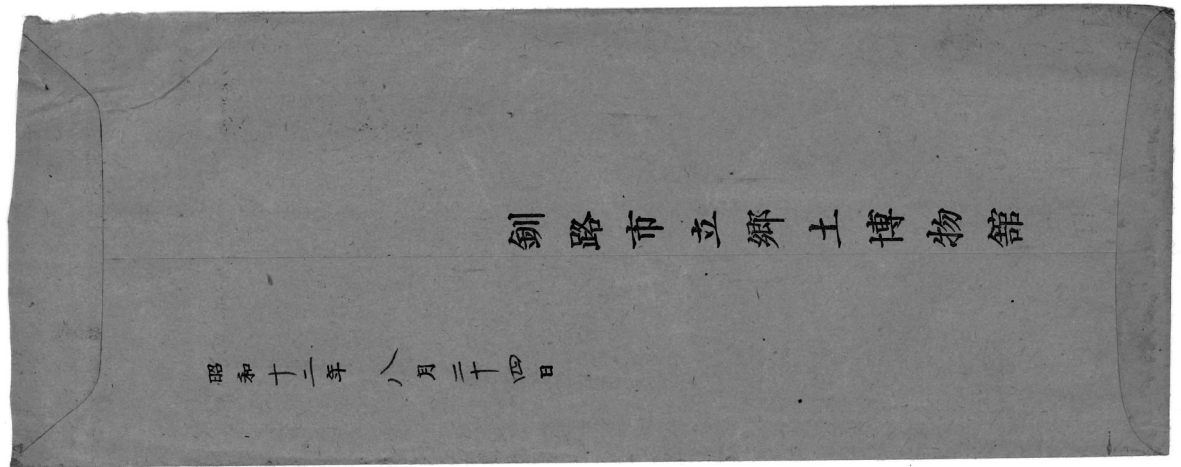 釧路市立郷土博物舘
昭和十二年 八月二十四日